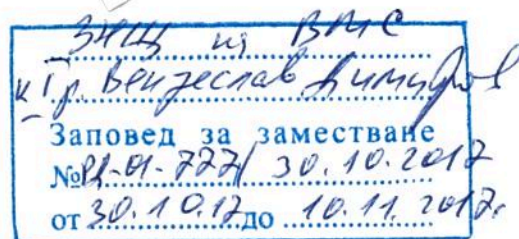 ЗНЩ на ВМС
к I р. Венцеслав Димитров
Заповед за заместване
№ РД-01-777/ 30.10.2017
от 30.10.17 до 10.11.2017г.